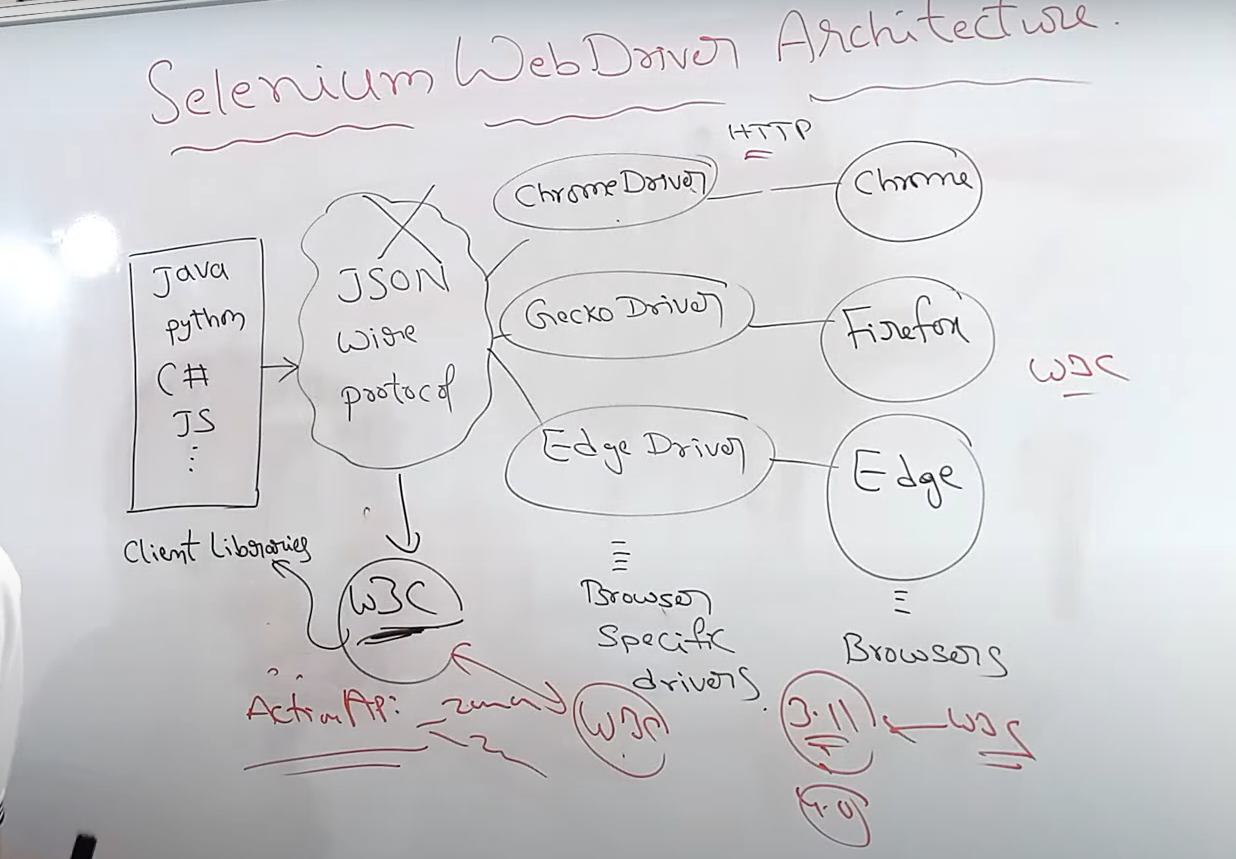 Selenium WebDriver Architecture.
HTTP
Java
python
C#
JS
⋮
Client Libraries
JSON
Wire
protocol
W3C
ChromeDriver
Gecko Driver
Edge Driver
Browser
Specific
drivers.
Chrome
Firefox
Edge
Browsers
W3C
Action API
W3C
3.11
W3C
4.0